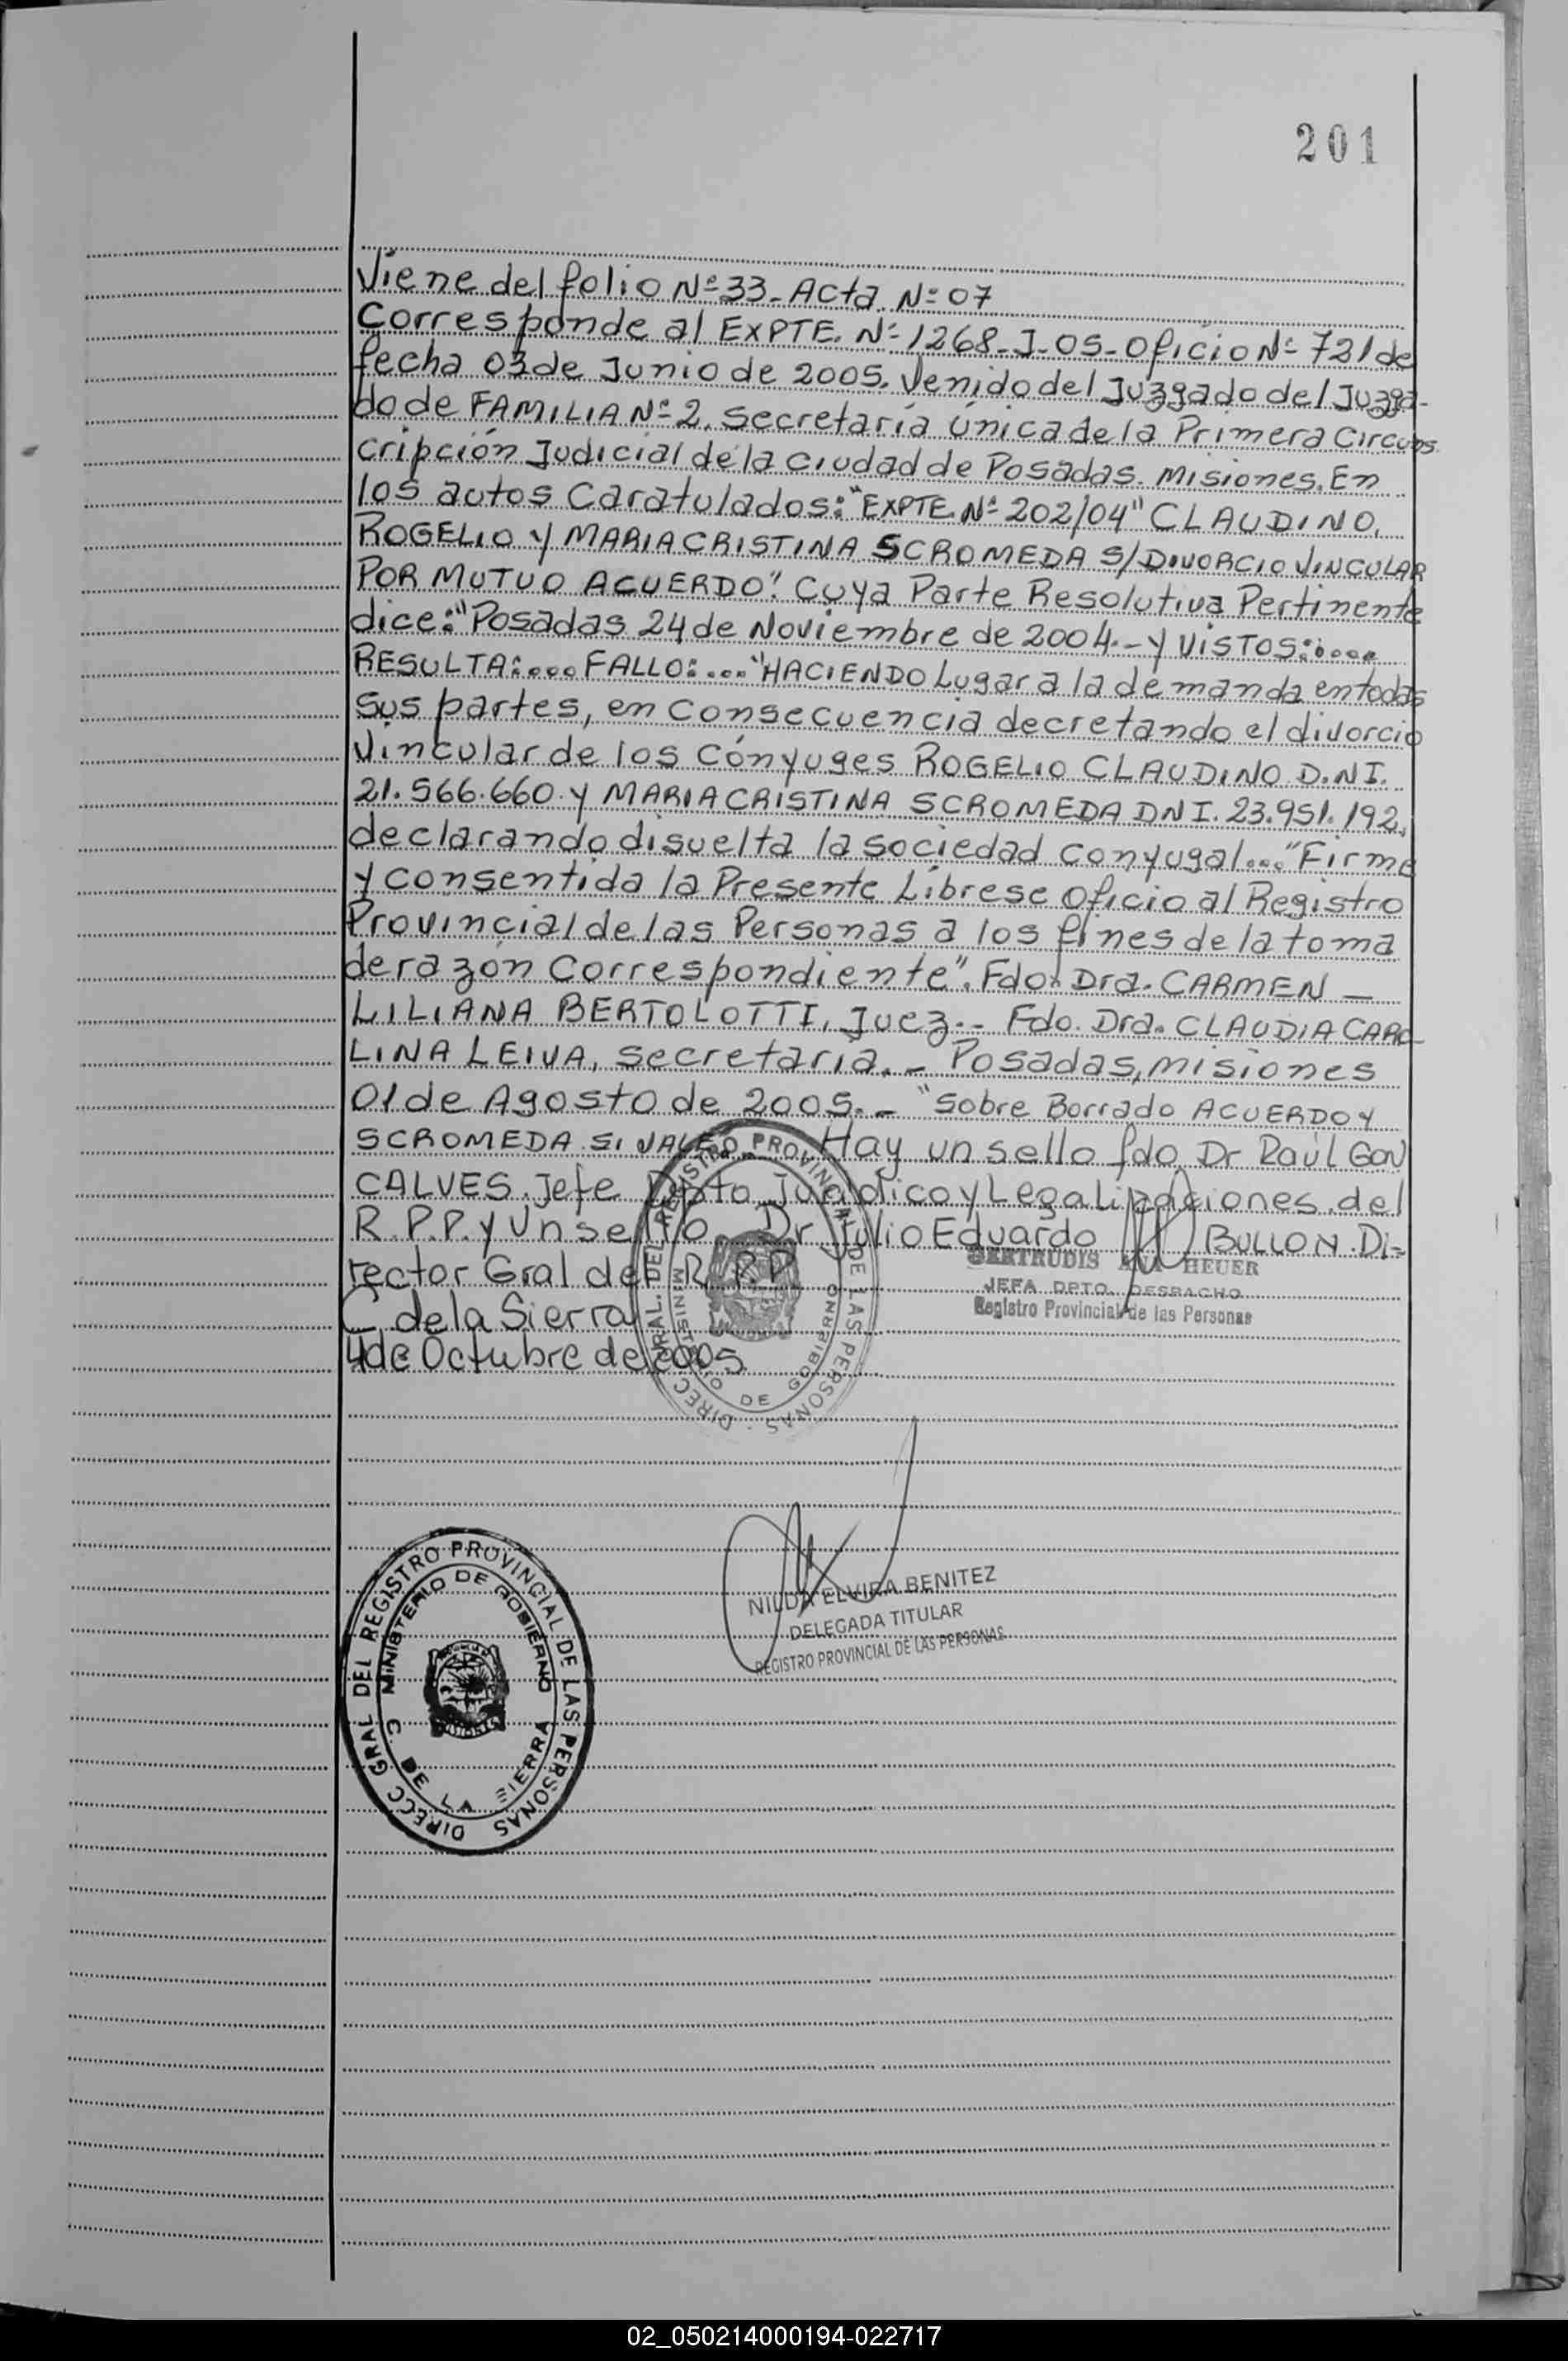 201
Viene del folio Nº 33- Acta. Nº 07
Corresponde al EXPTE. Nº 1268-J-05-Oficio Nº 721 de
fecha 03 de Junio de 2005. Venido del Juzgado del Juzga-
do de FAMILIA Nº 2. Secretaría Única de la Primera Circuns
cripción Judicial de la Ciudad de Posadas. Misiones. En
los autos Caratulados: "EXPTE. Nº 202/04" CLAUDINO,
ROGELIO Y MARIA CRISTINA SCROMEDA S/DIVORCIO VINCULAR
POR MUTUO ACUERDO". Cuya Parte Resolutiva Pertinente
dice: "Posadas 24 de Noviembre de 2004.- Y VISTOS:....
RESULTA:... FALLO:... "HACIENDO Lugar a la demanda en todas
sus partes, en Consecuencia decretando el divorcio
Vincular de los Cónyuges ROGELIO CLAUDINO D.N.I.
21.566.660 Y MARIA CRISTINA SCROMEDA DNI. 23.951.192,
declarando disuelta la sociedad conyugal..." Firme
y consentida la Presente Líbrese Oficio al Registro
Provincial de las Personas a los fines de la toma
de razon Correspondiente". Fdo. Dra. CARMEN -
LILIANA BERTOLOTTI, Juez.- Fdo. Dra. CLAUDIA CARO-
LINA LEIVA, Secretaria.- Posadas, Misiones
01 de Agosto de 2005.- "Sobre Borrado ACUERDO Y
SCROMEDA SI VALE" Hay un sello fdo Dr Raúl GON
CALVES. Jefe Dpto Juridico y Legalizaciones del
R.P.P. y Un sello Dr Julio Eduardo BULLON. Di-
rector Gral del R.P.P.
C de la Sierra
4 de Octubre de 2005
GERTRUDIS ANA HEUER
JEFA DPTO. DESPACHO
Registro Provincial de las Personas
DIRECC. GRAL. DEL REGISTRO PROVINCIAL DE LAS PERSONAS
MINISTERIO DE GOBIERNO
NILDA ELVIRA BENITEZ
DELEGADA TITULAR
REGISTRO PROVINCIAL DE LAS PERSONAS
DIRECC GRAL DEL REGISTRO PROVINCIAL DE LAS PERSONAS
MINISTERIO DE GOBIERNO
C. DE LA SIERRA
MISIONES
02_050214000194-022717